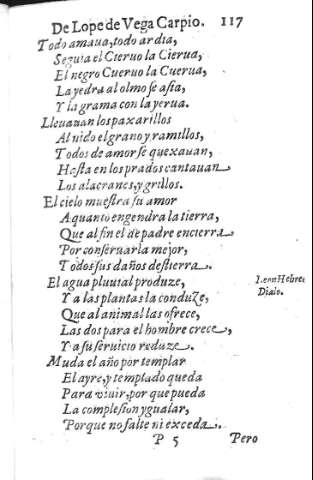 De Lope de Vega Carpio. 117
Todo amaua, todo ardia,
Seguia el Cieruo la Cierua,
El negro Cueruo la Cuerua,
La yedra al olmo se asia,
Y la grama con la yerua.
Lleuauan los paxarillos
Al nido el grano y ramillos,
Todos de amor se quexauan,
Hasta en los prados cantauan
Los alacranes, y grillos.
El cielo muestra su amor
A quanto engendra la tierra,
Que al fin el de padre encierra
Por conseruarla mejor,
Todos sus daños destierra.
El agua pluuial produze,
Leon Hebreo
Y a las plantas la conduze,
Dialo.
Que al animal las ofrece,
Las dos para el hombre crece,
Y a su seruicio reduze.
Muda el año por templar
El ayre, y templado queda
Para viuir, por que pueda
La complesion ygualar,
Porque no falte ni exceda.
P 5 Pero